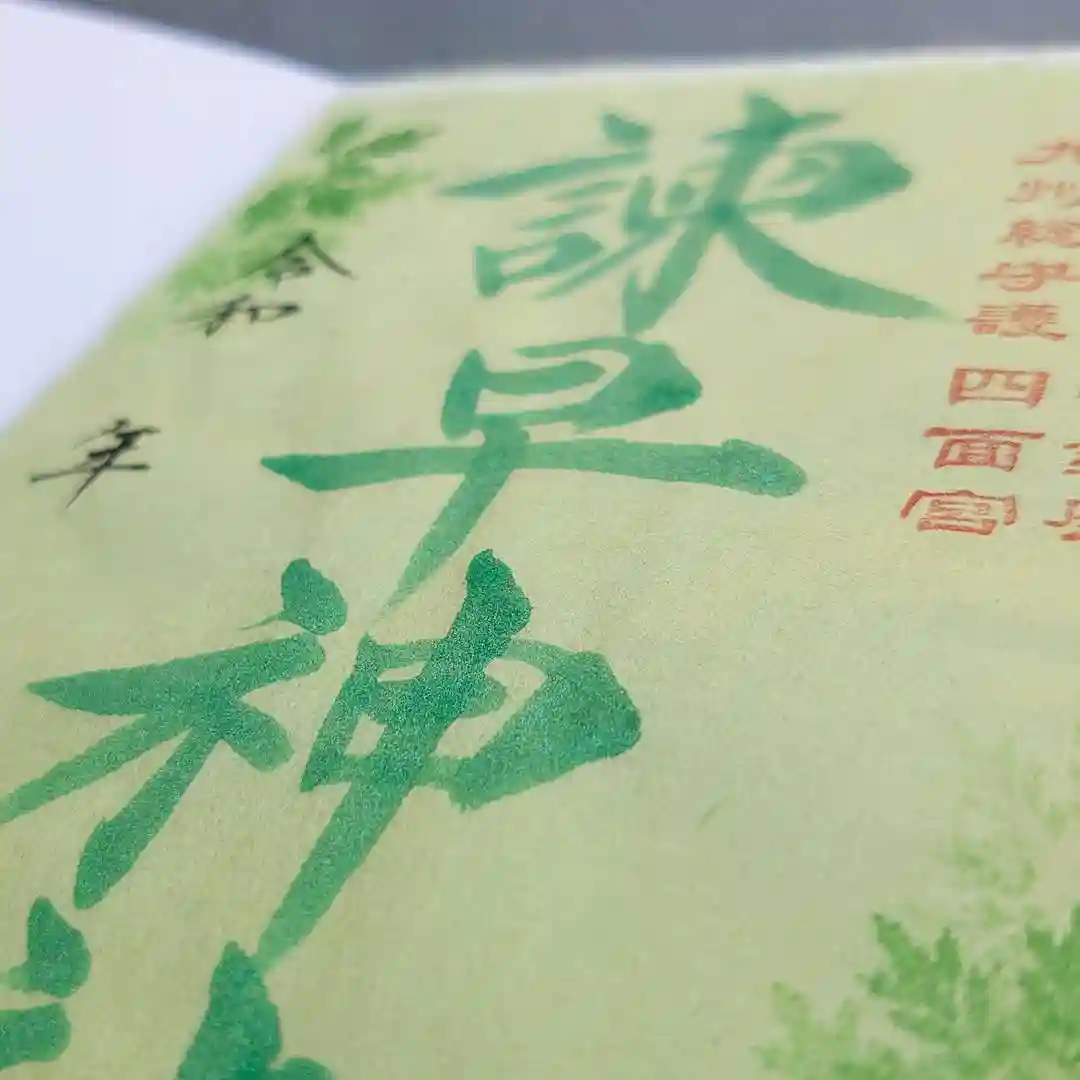 九州総守護 四面宮
諫早神
令和 年